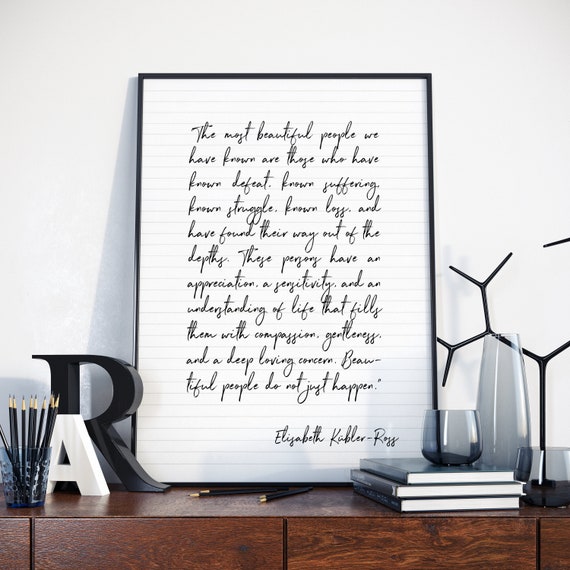 "The most beautiful people we
have known are those who have
known defeat, known suffering,
known struggle, known loss, and
have found their way out of the
depths. These persons have an
appreciation, a sensitivity, and an
understanding of life that fills
them with compassion, gentleness,
and a deep loving concern. Beau-
tiful people do not just happen."
Elisabeth Kübler-Ross
R
A